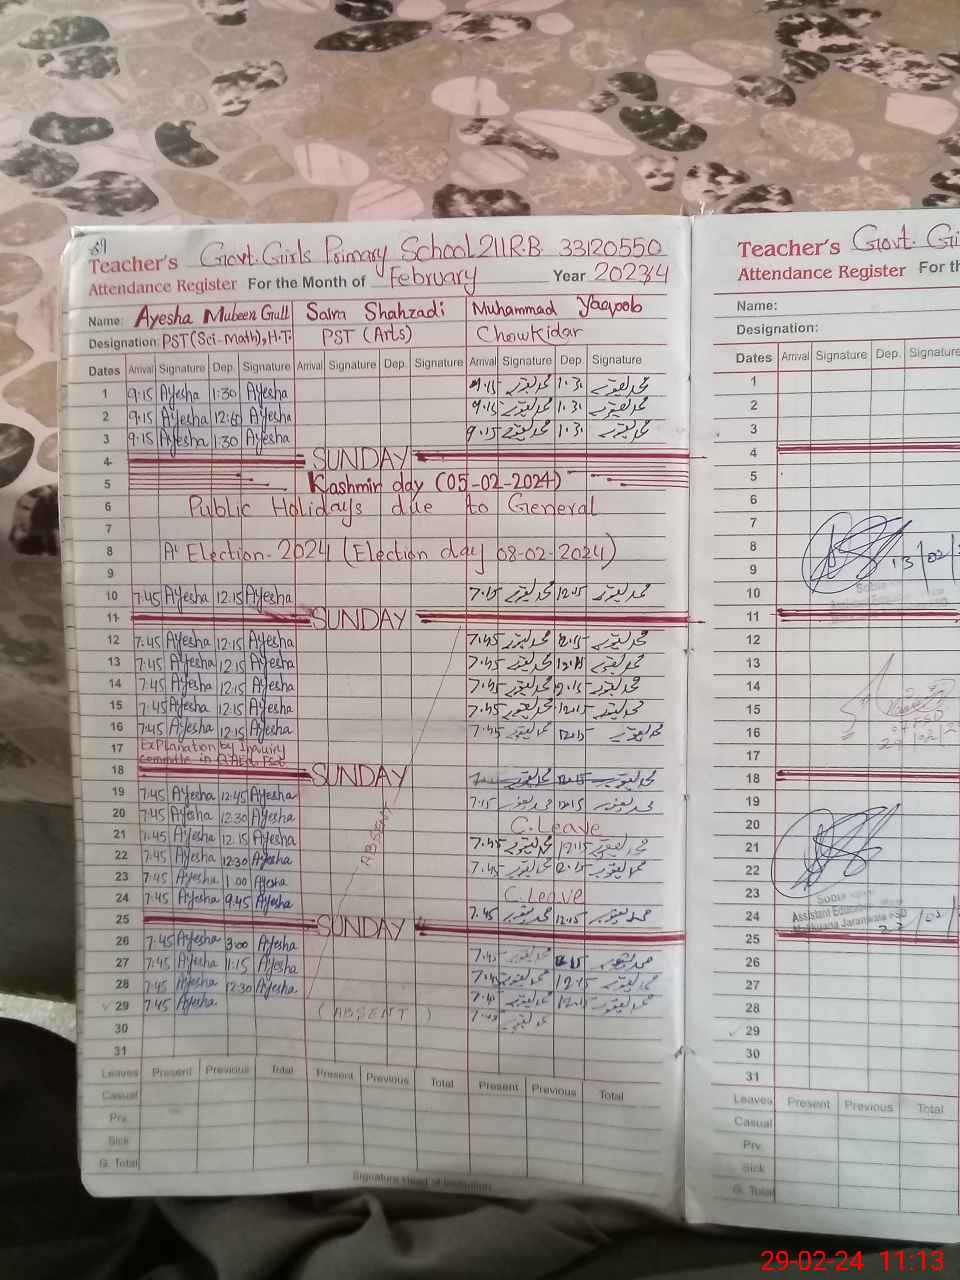 89
Teacher's Govt. Girls Primary School 211 R.B 33120550
Attendance Register For the Month of February Year 2023/4
Name: Ayesha Mubeen Gull Saim Shahzadi Muhammad Yaqoob
Designation: PST(Sci-math), H.T. PST (Arts) Chowkidar
Dates Arrival Signature Dep. Signature Arrival Signature Dep. Signature Arrival Signature Dep. Signature
1 9:15 Ayesha 1:30 Ayesha 9.15 محمد یعقوب 1.31 محمد یعقوب
2 9:15 Ayesha Ayesha 9.15 محمد یعقوب 1.31 محمد یعقوب
3 9:15 Ayesha 1:30 Ayesha 9.15 محمد یعقوب 1.31 محمد یعقوب
4 SUNDAY
5 Kashmir day (05-02-2024)
6 Public Holidays due to General
7
8 Election-2024 (Election day 08-02-2024)
9
10 7:45 Ayesha 12:15 Ayesha محمد یعقوب 12.15 محمد یعقوب
11 SUNDAY
12 7:45 Ayesha 12:15 Ayesha 7.45 محمد یعقوب محمد یعقوب
13 7:45 Ayesha 12:15 Ayesha 7.45 محمد یعقوب محمد یعقوب
14 7:45 Ayesha 12:15 Ayesha 7.45 محمد یعقوب محمد یعقوب
15 7:45 Ayesha 12:15 Ayesha 7.45 محمد یعقوب 12.15 محمد یعقوب
16 7:45 Ayesha 12:15 Ayesha 7.45 محمد یعقوب 12.15 محمد یعقوب
17 Explanation by Inquiry
committe in
18 SUNDAY محمد یعقوب
19 7:45 Ayesha 12:45 Ayesha محمد یعقوب 12.15 محمد یعقوب
20 7:45 Ayesha 12:30 Ayesha C.Leave
21 7:45 Ayesha 12:15 Ayesha 7.45 محمد یعقوب 12.15 محمد یعقوب
22 7:45 Ayesha 12:30 Ayesha 7.45 محمد یعقوب 12.15 محمد یعقوب
23 7:45 Ayesha 1:00 Ayesha C.Leave
24 7:45 Ayesha 9:45 Ayesha 7.45 محمد یعقوب 12.15 محمد یعقوب
ABSENT
25 SUNDAY
26 7:45 Ayesha 3:00 Ayesha 7.45 محمد یعقوب محمد یعقوب
27 7:45 Ayesha 1:15 Ayesha 7.45 محمد یعقوب 12.15 محمد یعقوب
28 7:45 Ayesha 12:30 Ayesha محمد یعقوب محمد یعقوب
29 7:45 Ayesha (ABSENT) محمد یعقوب
30
31
Leaves Present Previous Total Present Previous Total Present Previous Total
Casual
Prv.
Sick
G. Total
Signature Head of Institution
Teacher's Govt.
Attendance Register
Name:
Designation:
Dates Arrival Signature Dep. Signature
1
2
3
4
5
6
7
8
9
13/02/
10
11
12
13
14
15
16
17
18
19
20
21
22
23
24
Assistant
25
26
27
28
29
30
31
Leaves Present Previous Total
Casual
Prv.
Sick
G. Total
29-02-24 11:13